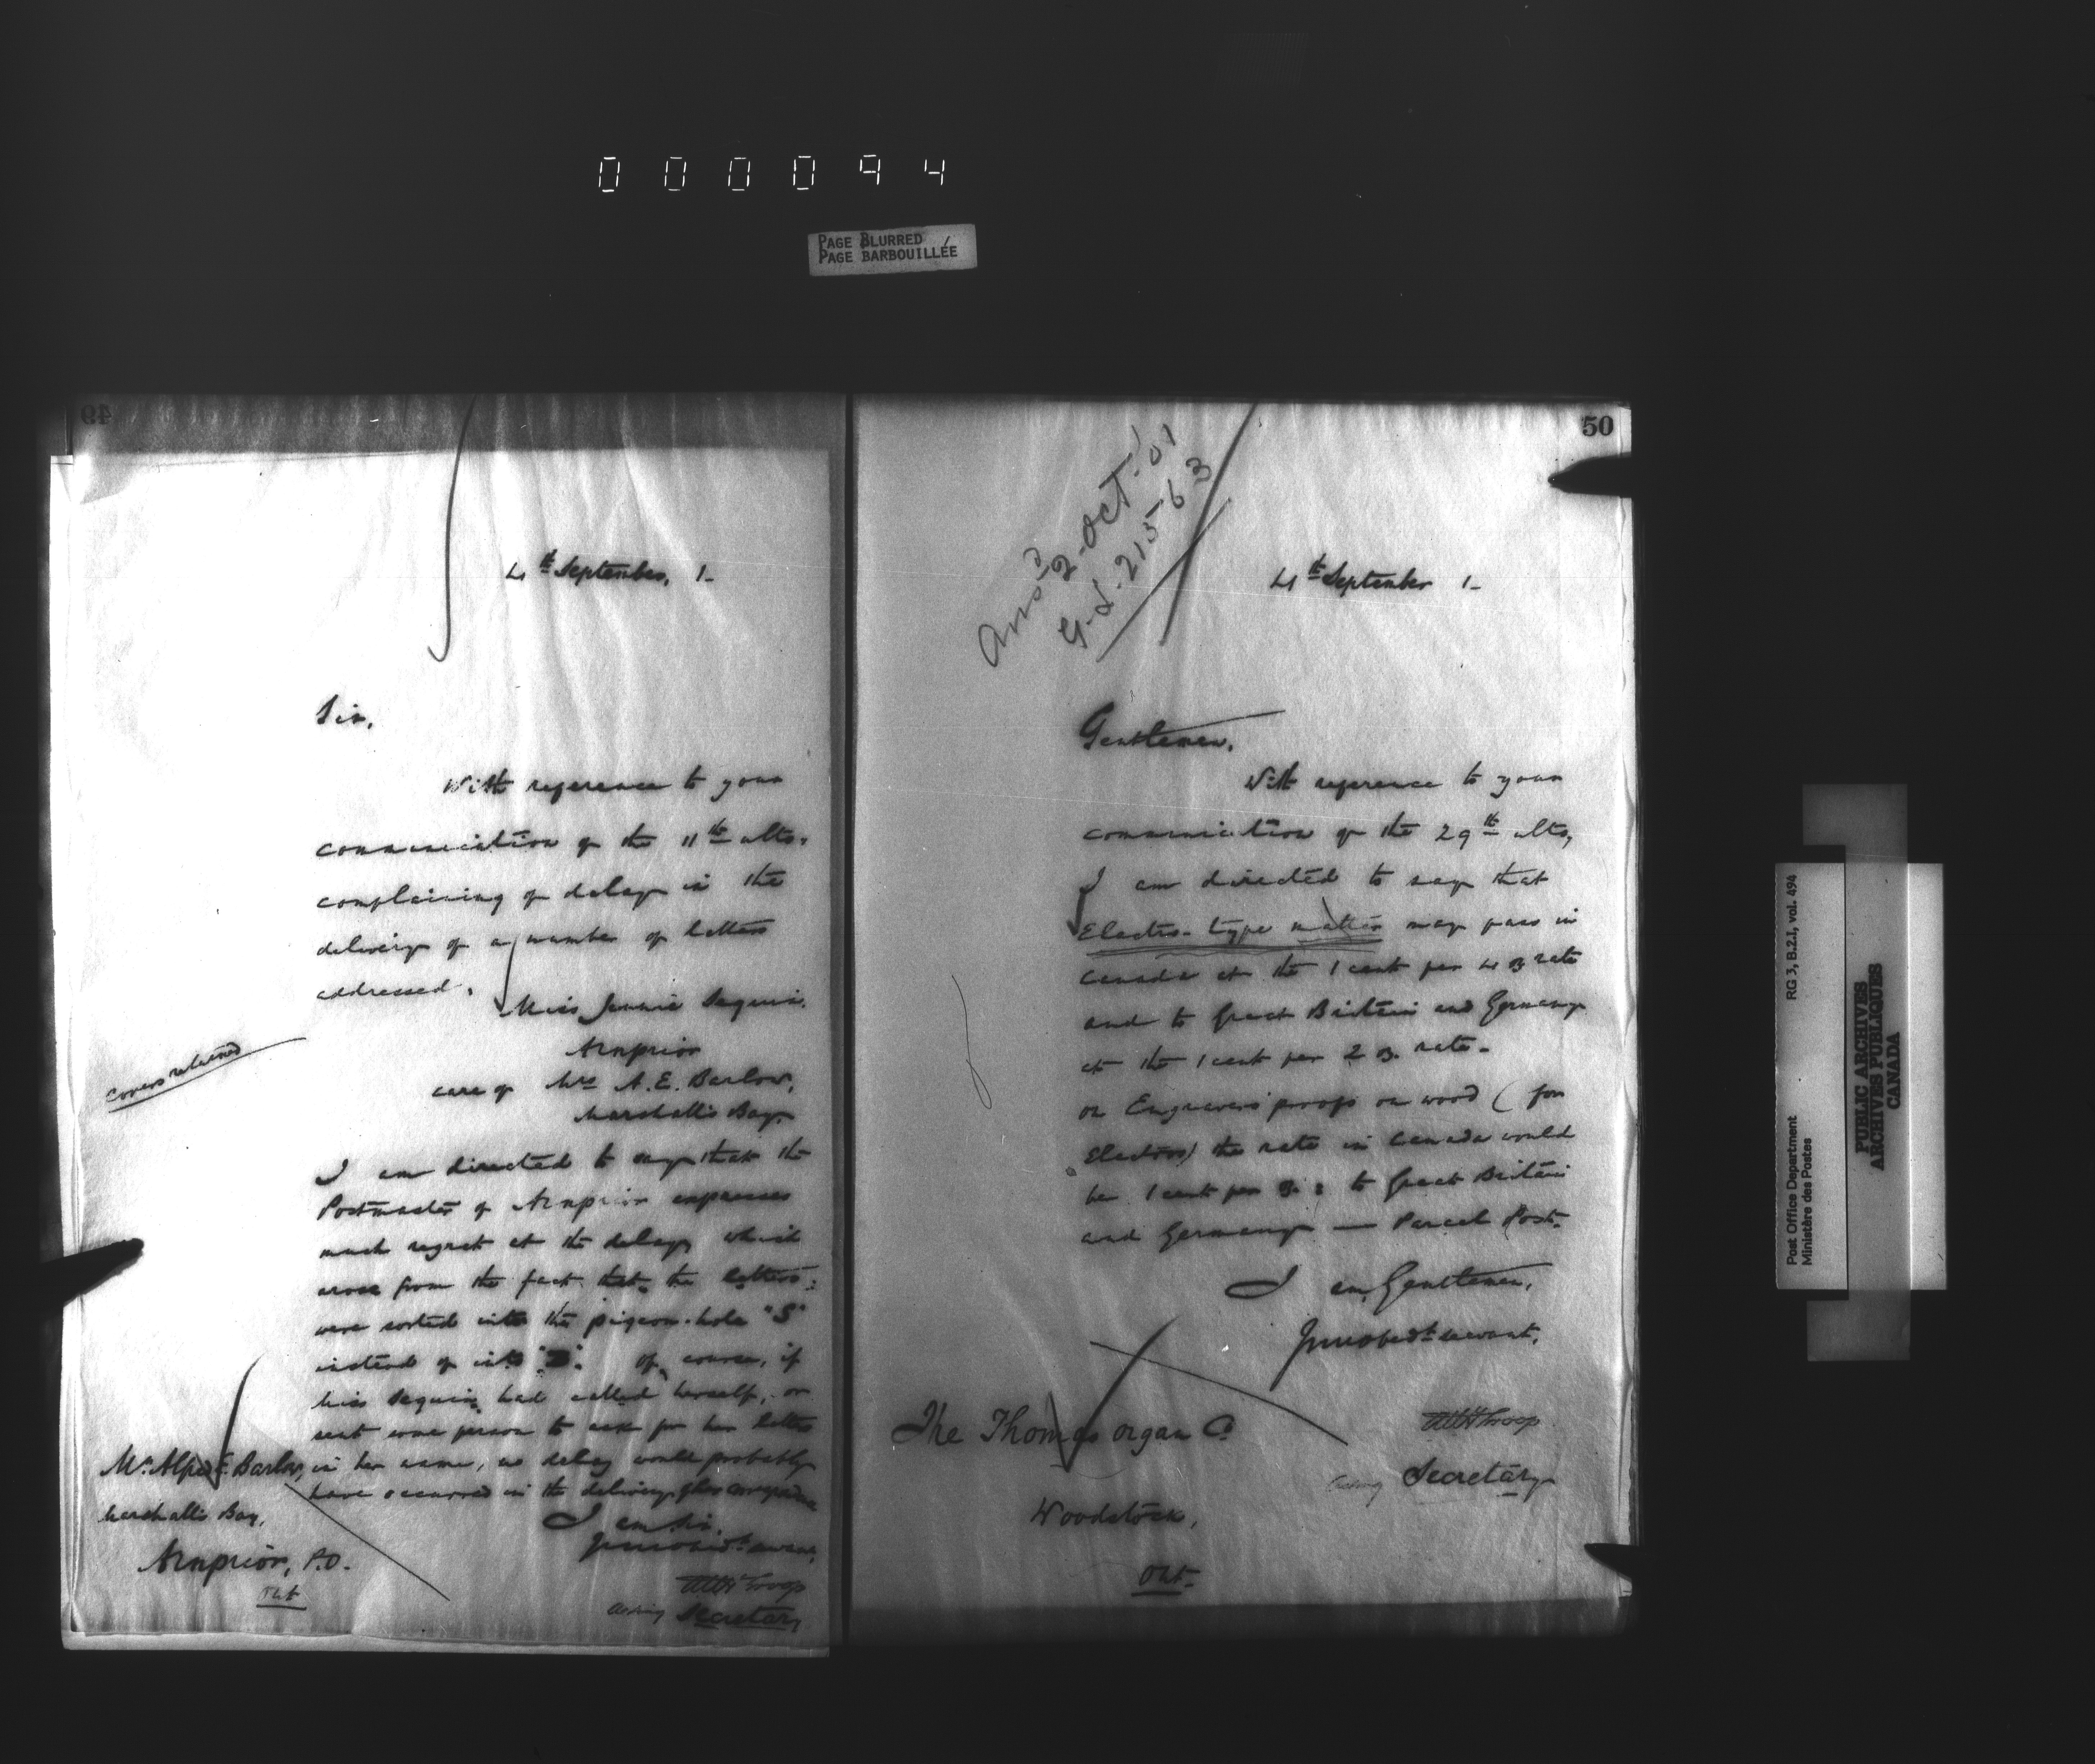 000094
PAGE BLURRED
PAGE BARBOUILLÉE
49
4th September, 1-
Sir,
With reference to your
communication of the 11th ulto.
complaining of delay in the
delivery of a number of letters
addressed,
Miss Jennie Seguin.
Arnprior
care of Mrs A. E. Barlow,
Marshall's Bay
Covers returned
I am directed to say that the
Postmaster of Arnprior expresses
much regret at the delay which
arose from the fact that the letters
were sorted into the pigeon-hole "S"
instead of into "B". Of course, if
Miss Seguin had called herself, or
sent some person to ask for her letters
in her name, no delay would probably
have occurred in the delivery of her correspondence
I am, Sir,
Your obedt. servant,
WHTroop
Acting Secretary
Mr. Alfred E. Barlow,
Marshall's Bay,
Arnprior, P.O.
Ont
50
Ansd 2-Oct-'01
G-L-21563
4th September 1-
Gentlemen,
With reference to your
communication of the 29th ulto,
I am directed to say that
Electro-type matter may pass in
Canada at the 1 cent per 4 oz rate
and to Great Britain and Germany
at the 1 cent per 2 oz. rate.
On Engravers' proofs on wood (for
Electros) the rate in Canada would
be 1 cent per oz.: to Great Britain
and Germany — Parcel Post.
I am, Gentlemen,
Your obedt servant,
WHTroop
Acting Secretary
The Thomas Organ Co
Woodstock,
Ont.
Post Office Department
Ministère des Postes
RG 3, B.2.1, vol. 494
PUBLIC ARCHIVES
ARCHIVES PUBLIQUES
CANADA